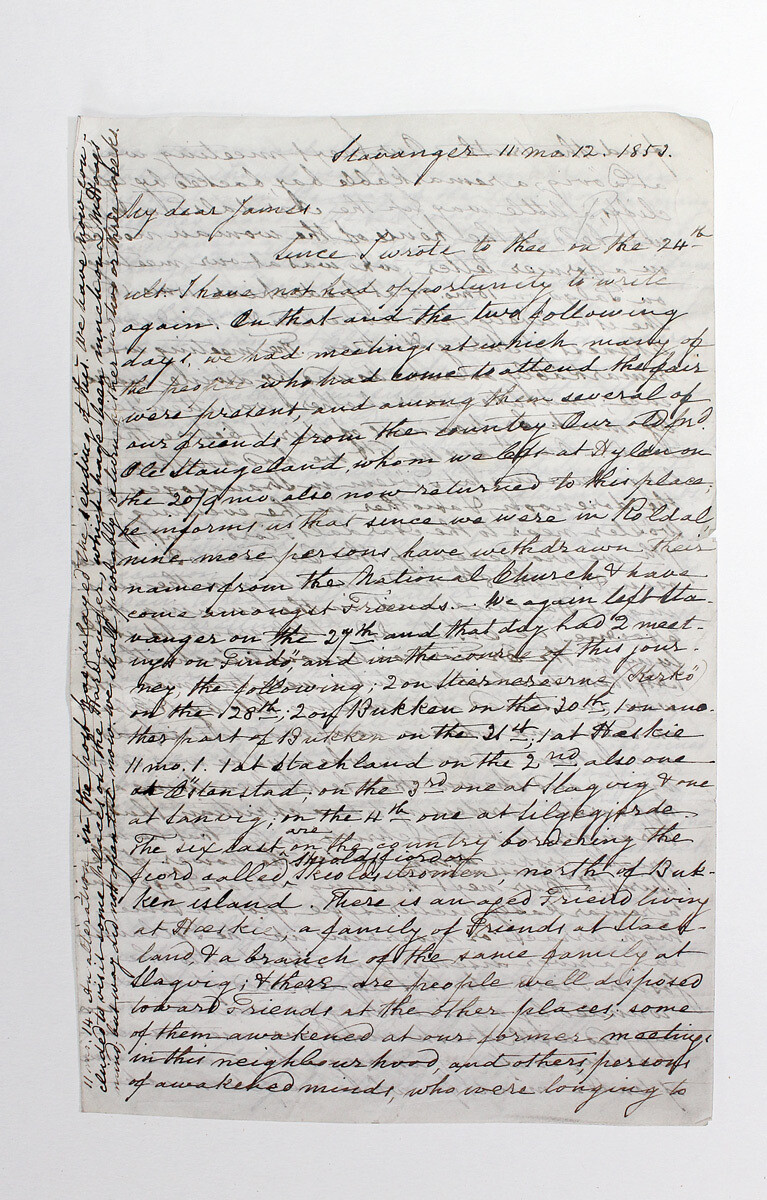 Stavanger 11 mo. 12. 1853.
My dear James
Since I wrote to thee on the 24th
ult. I have not had opportunity to write
again. On that and the two following
days, we had meetings at which many of
the people who had come to attend the fair
were present, and among them several of
our friends from the country. Our old frd
Ole Stangeland, whom we left at Hylen on
the 20/9 mo. also now returned to this place;
he informs us that since we were in Roldal
nine more persons have withdrawn their
names from the National Church & have
come amongst Friends. We again left Sta-
vanger on the 27th and that day had 2 meet-
ings on Findö, and in the course of this jour-
ney, the following; 2 on (Karkö)
on the 28th; 2 on Bukken on the 30th, 1 on ano-
ther part of Bukken on the 31st, 1 at Hæskie
11 mo. 1. 1 at Stackland on the 2nd, also one
at Östanstad, on the 3rd one at Slagvig & one
at Sanvig; on the 4th one at
The six last are on the country bordering the
fiord called Skioldsfiord or Skioldstromen, north of Buk-
ken island. There is an aged Friend living
at Hæskie, a family of Friends at Stack-
land, & a branch of the same family at
Slagvig; & there are people well disposed
toward Friends at the other places; some
of them awakened at our former meetings
in this neighbourhood, and others, persons
of awakened minds, who were longing to
11 mo. 14. An alteration in the post having delayed the sending of this we have now con-
cluded to visit some places on the Hardanger, which have been mentioned in
mind, but way did not open till now. We shall probably return hither in two or three weeks.